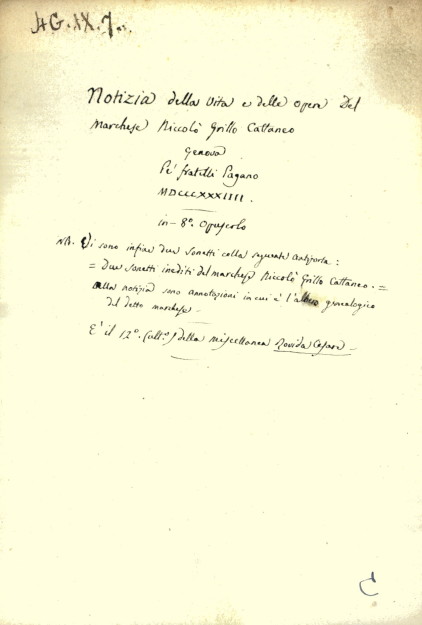 AG.IX.7
Notizia della vita e delle opere Del
Marchese Niccolò Grillo Cattaneo
Genova
Pe' fratelli Pagano
MDCCCXXXIIII.
in-8º. Opuscolo
NB. Vi sono infine due sonetti colla seguente antiporta:
= Due sonetti inediti del marchese Niccolò Grillo Cattaneo. =
Alla notizia sono annotazioni in cui è l'albero genealogico
del detto marchese -
E' il 12º. (ult:º) della miscellanea Rovida Cesare -
C